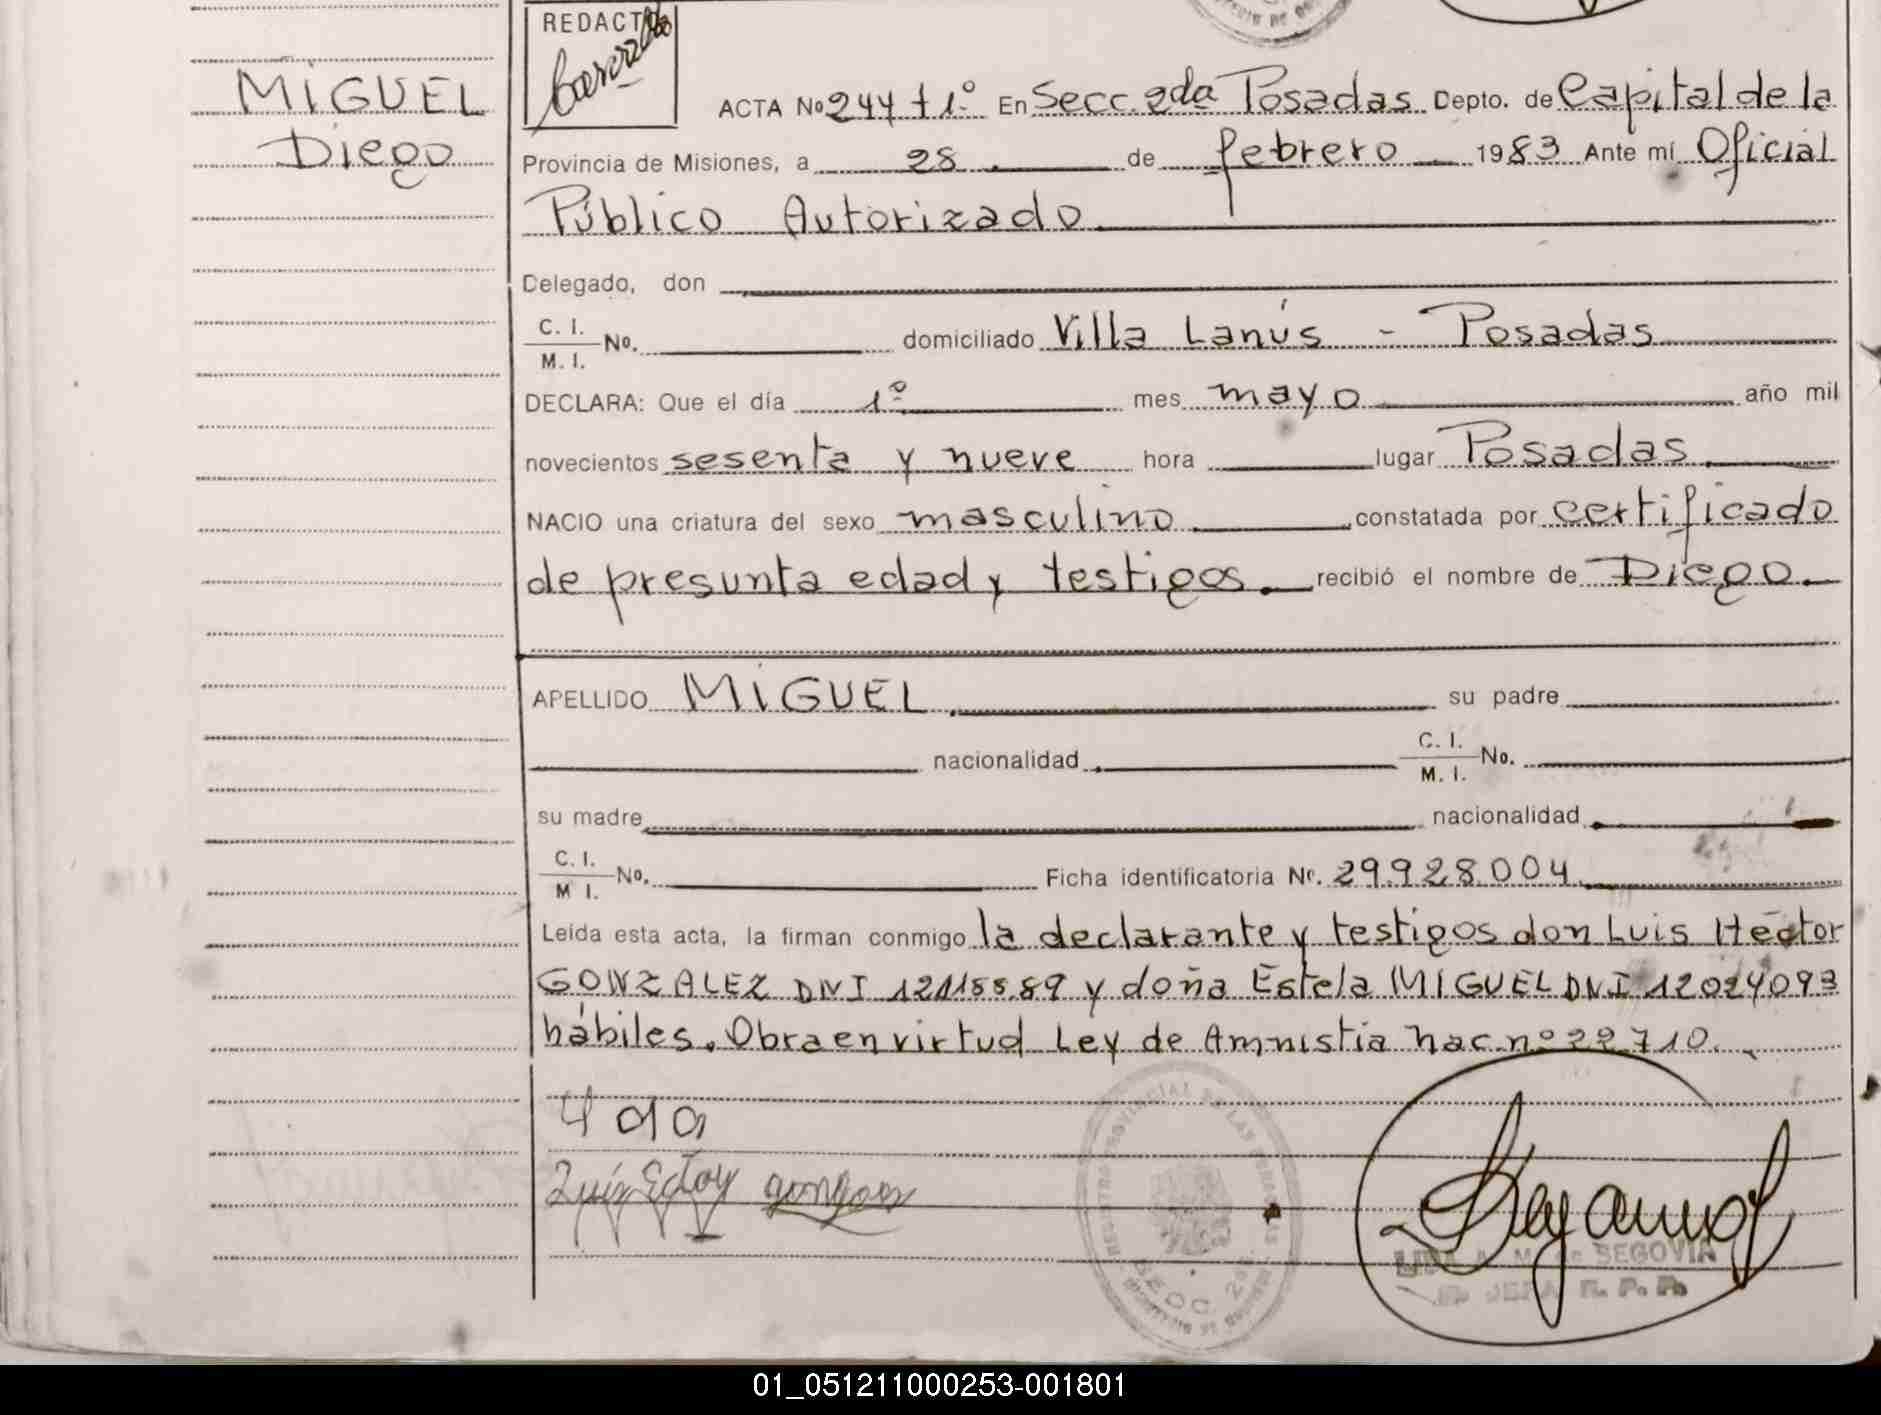 MIGUEL
Diego
REDACTO
ACTA Nº 244 t 1º En Secc. 2da Posadas Depto. de Capital de la
Provincia de Misiones, a 28 de febrero 1983 Ante mí Oficial
Público Autorizado
Delegado, don
C. I.
M. I. No. domiciliado Villa Lanús - Posadas
DECLARA: Que el día 1º mes mayo año mil
novecientos sesenta y nueve hora lugar Posadas
NACIO una criatura del sexo masculino constatada por certificado
de presunta edad y testigos. recibió el nombre de Diego.
APELLIDO MIGUEL su padre
nacionalidad C. I.
M. I. No.
su madre nacionalidad
C. I.
M I. No. Ficha identificatoria Nº. 29.928.004
Leída esta acta, la firman conmigo la declarante y testigos don Luis Héctor
GONZALEZ DNI 12118589 y doña Estela MIGUEL DNI 12024093
hábiles. Obra en virtud Ley de Amnistia nac. nº 22710.
SEGOVIA
JEFA R. P. P.
SECC. 2da.
01_051211000253-001801